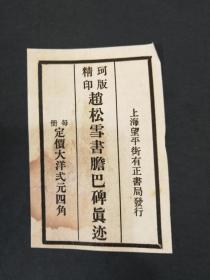 上海望平街有正書局發行
珂版精印趙松雪書膽巴碑眞迹
每册定價大洋弍元四角